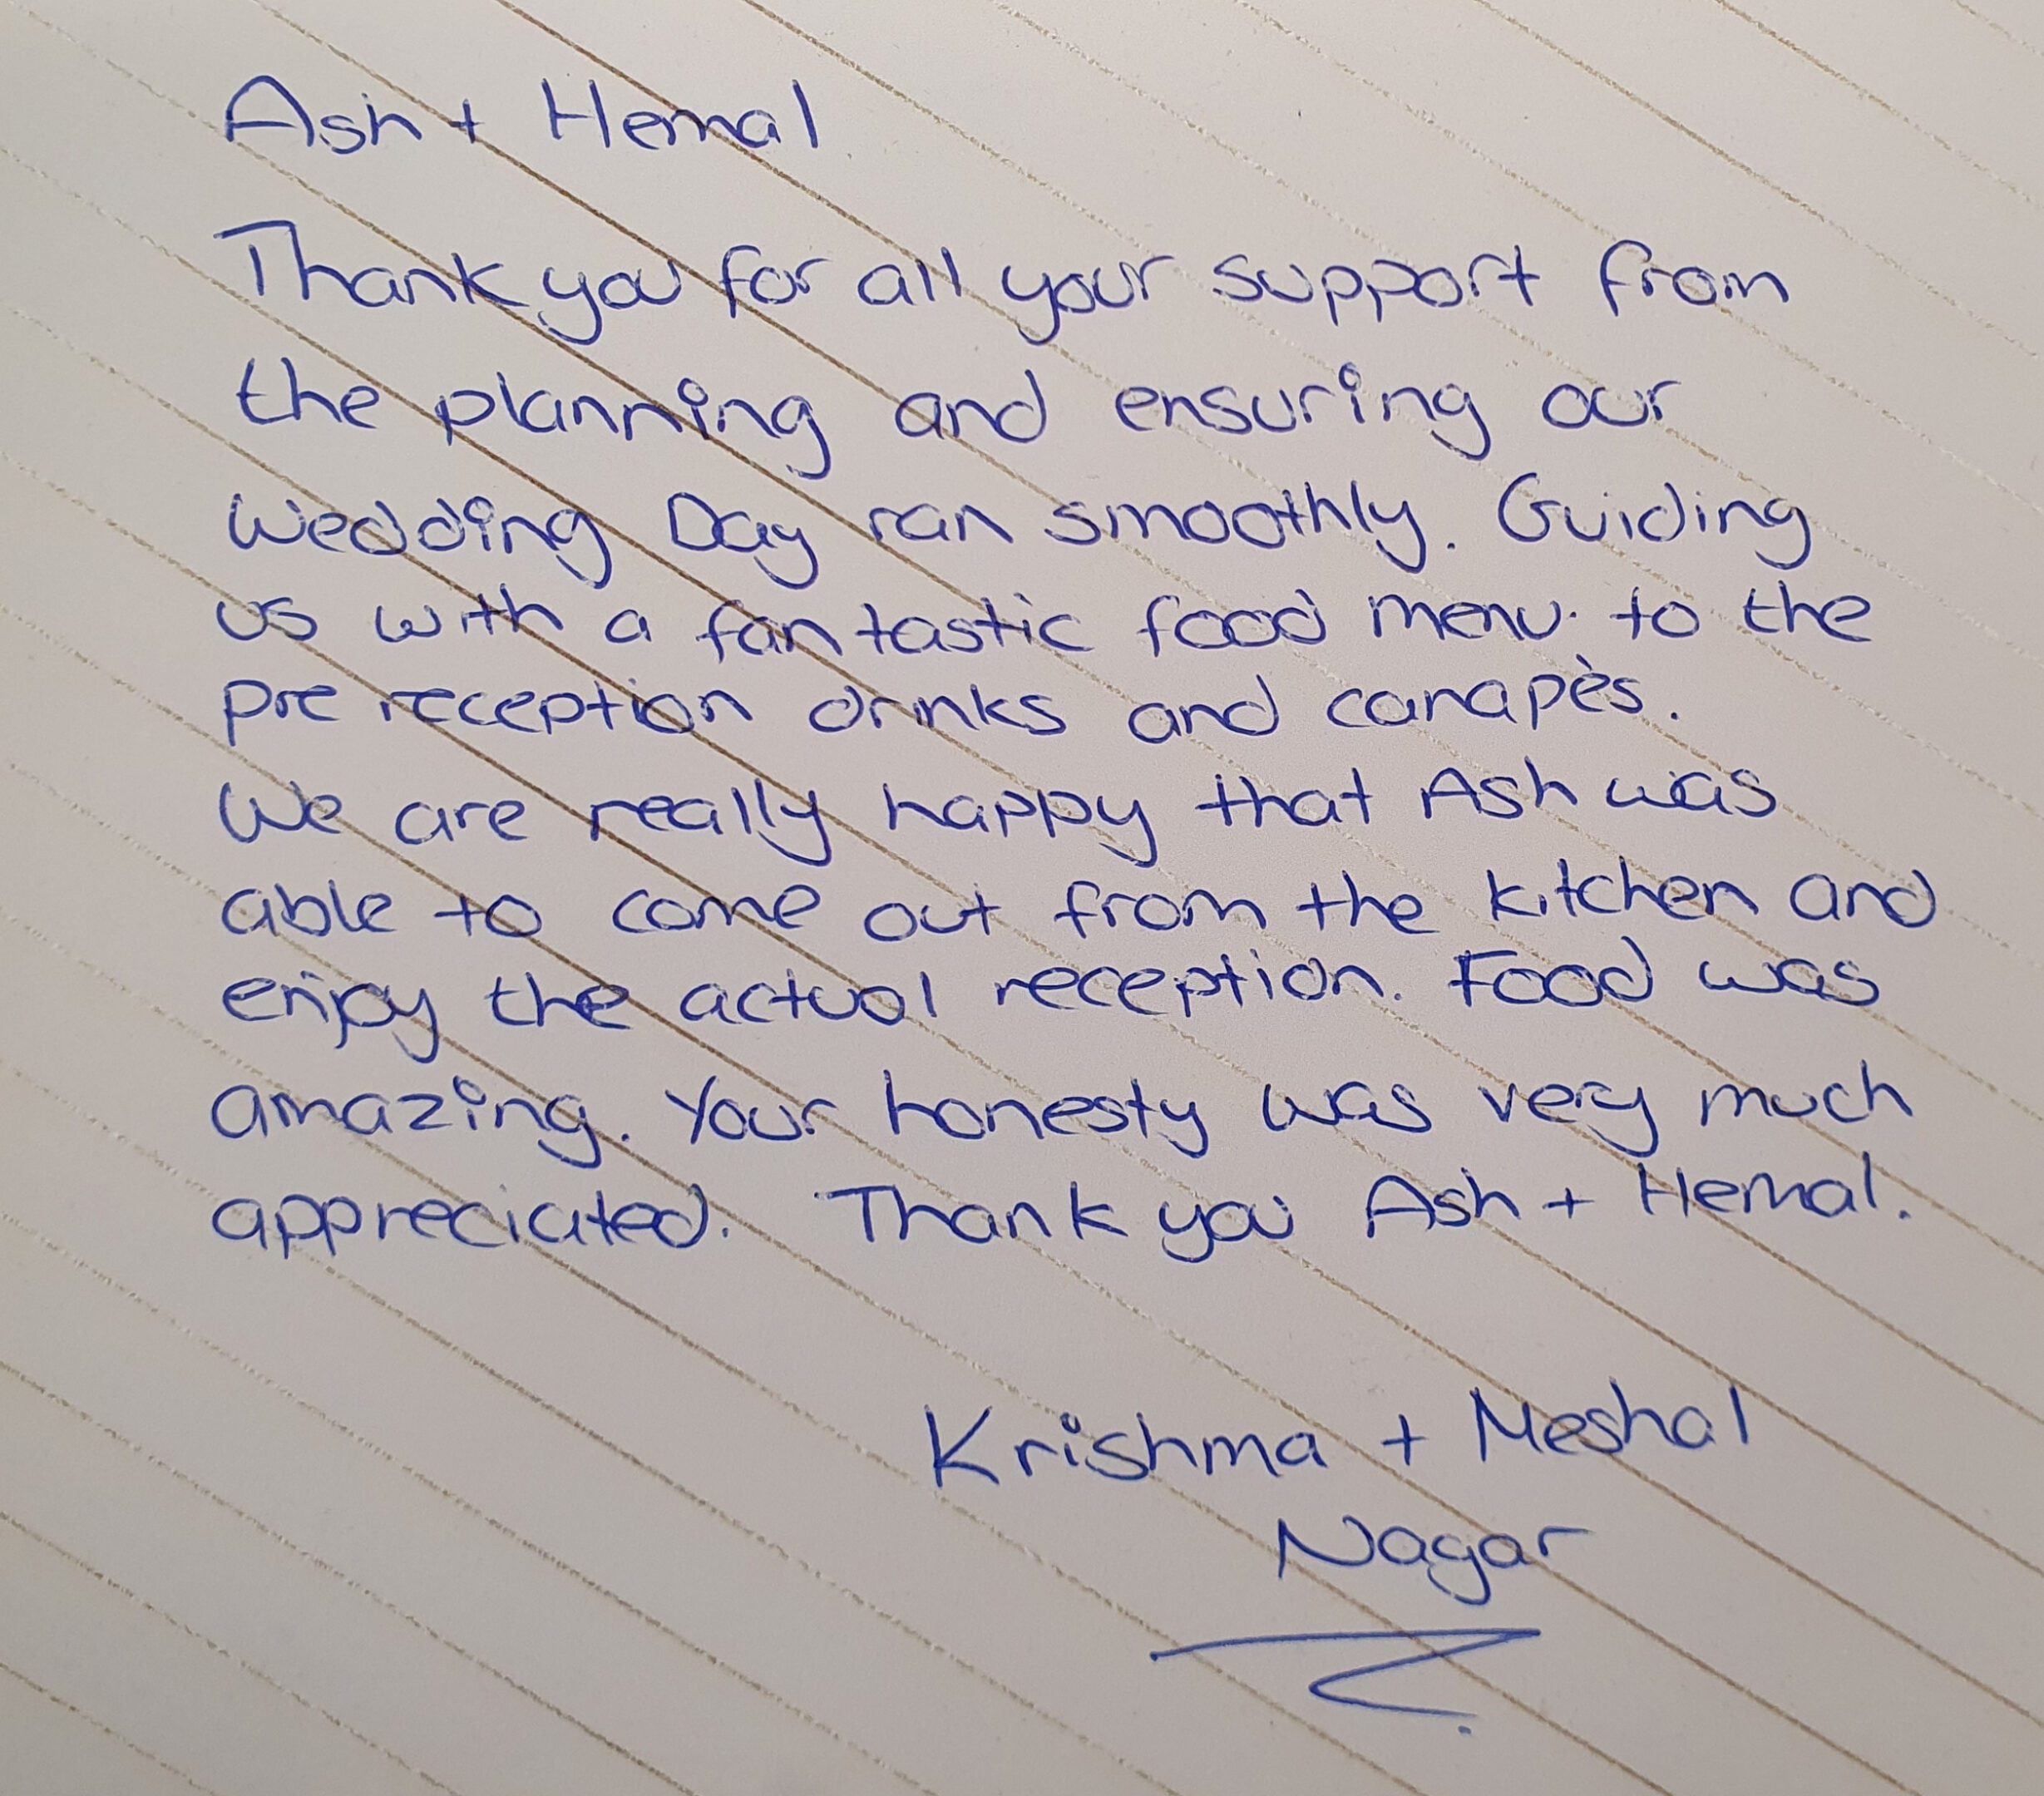 Ash + Hemal
Thank you for all your support from
the planning and ensuring our
Wedding Day ran smoothly. Guiding
us with a fantastic food menu to the
pre reception drinks and canapès.
We are really happy that Ash was
able to come out from the kitchen and
enjoy the actual reception. Food was
amazing. Your honesty was very much
appreciated. Thank you Ash + Hemal.
Krishma + Meshal
Nagar